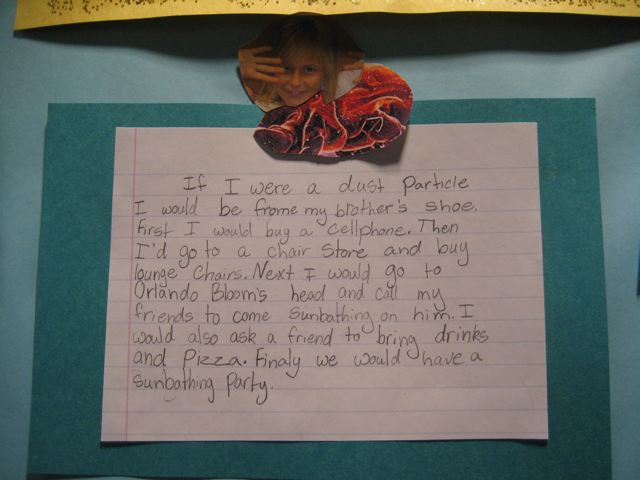 If I were a dust Particle
I would be frome my brother's shoe.
First I would buy a cellphone. Then
I'd go to a chair store and buy
lounge Chairs. Next I would go to
Orlando Bloom's head and call my
friends to come sunbathing on him. I
would also ask a friend to bring drinks
and Pizza. Finaly we would have a
sunbathing party.